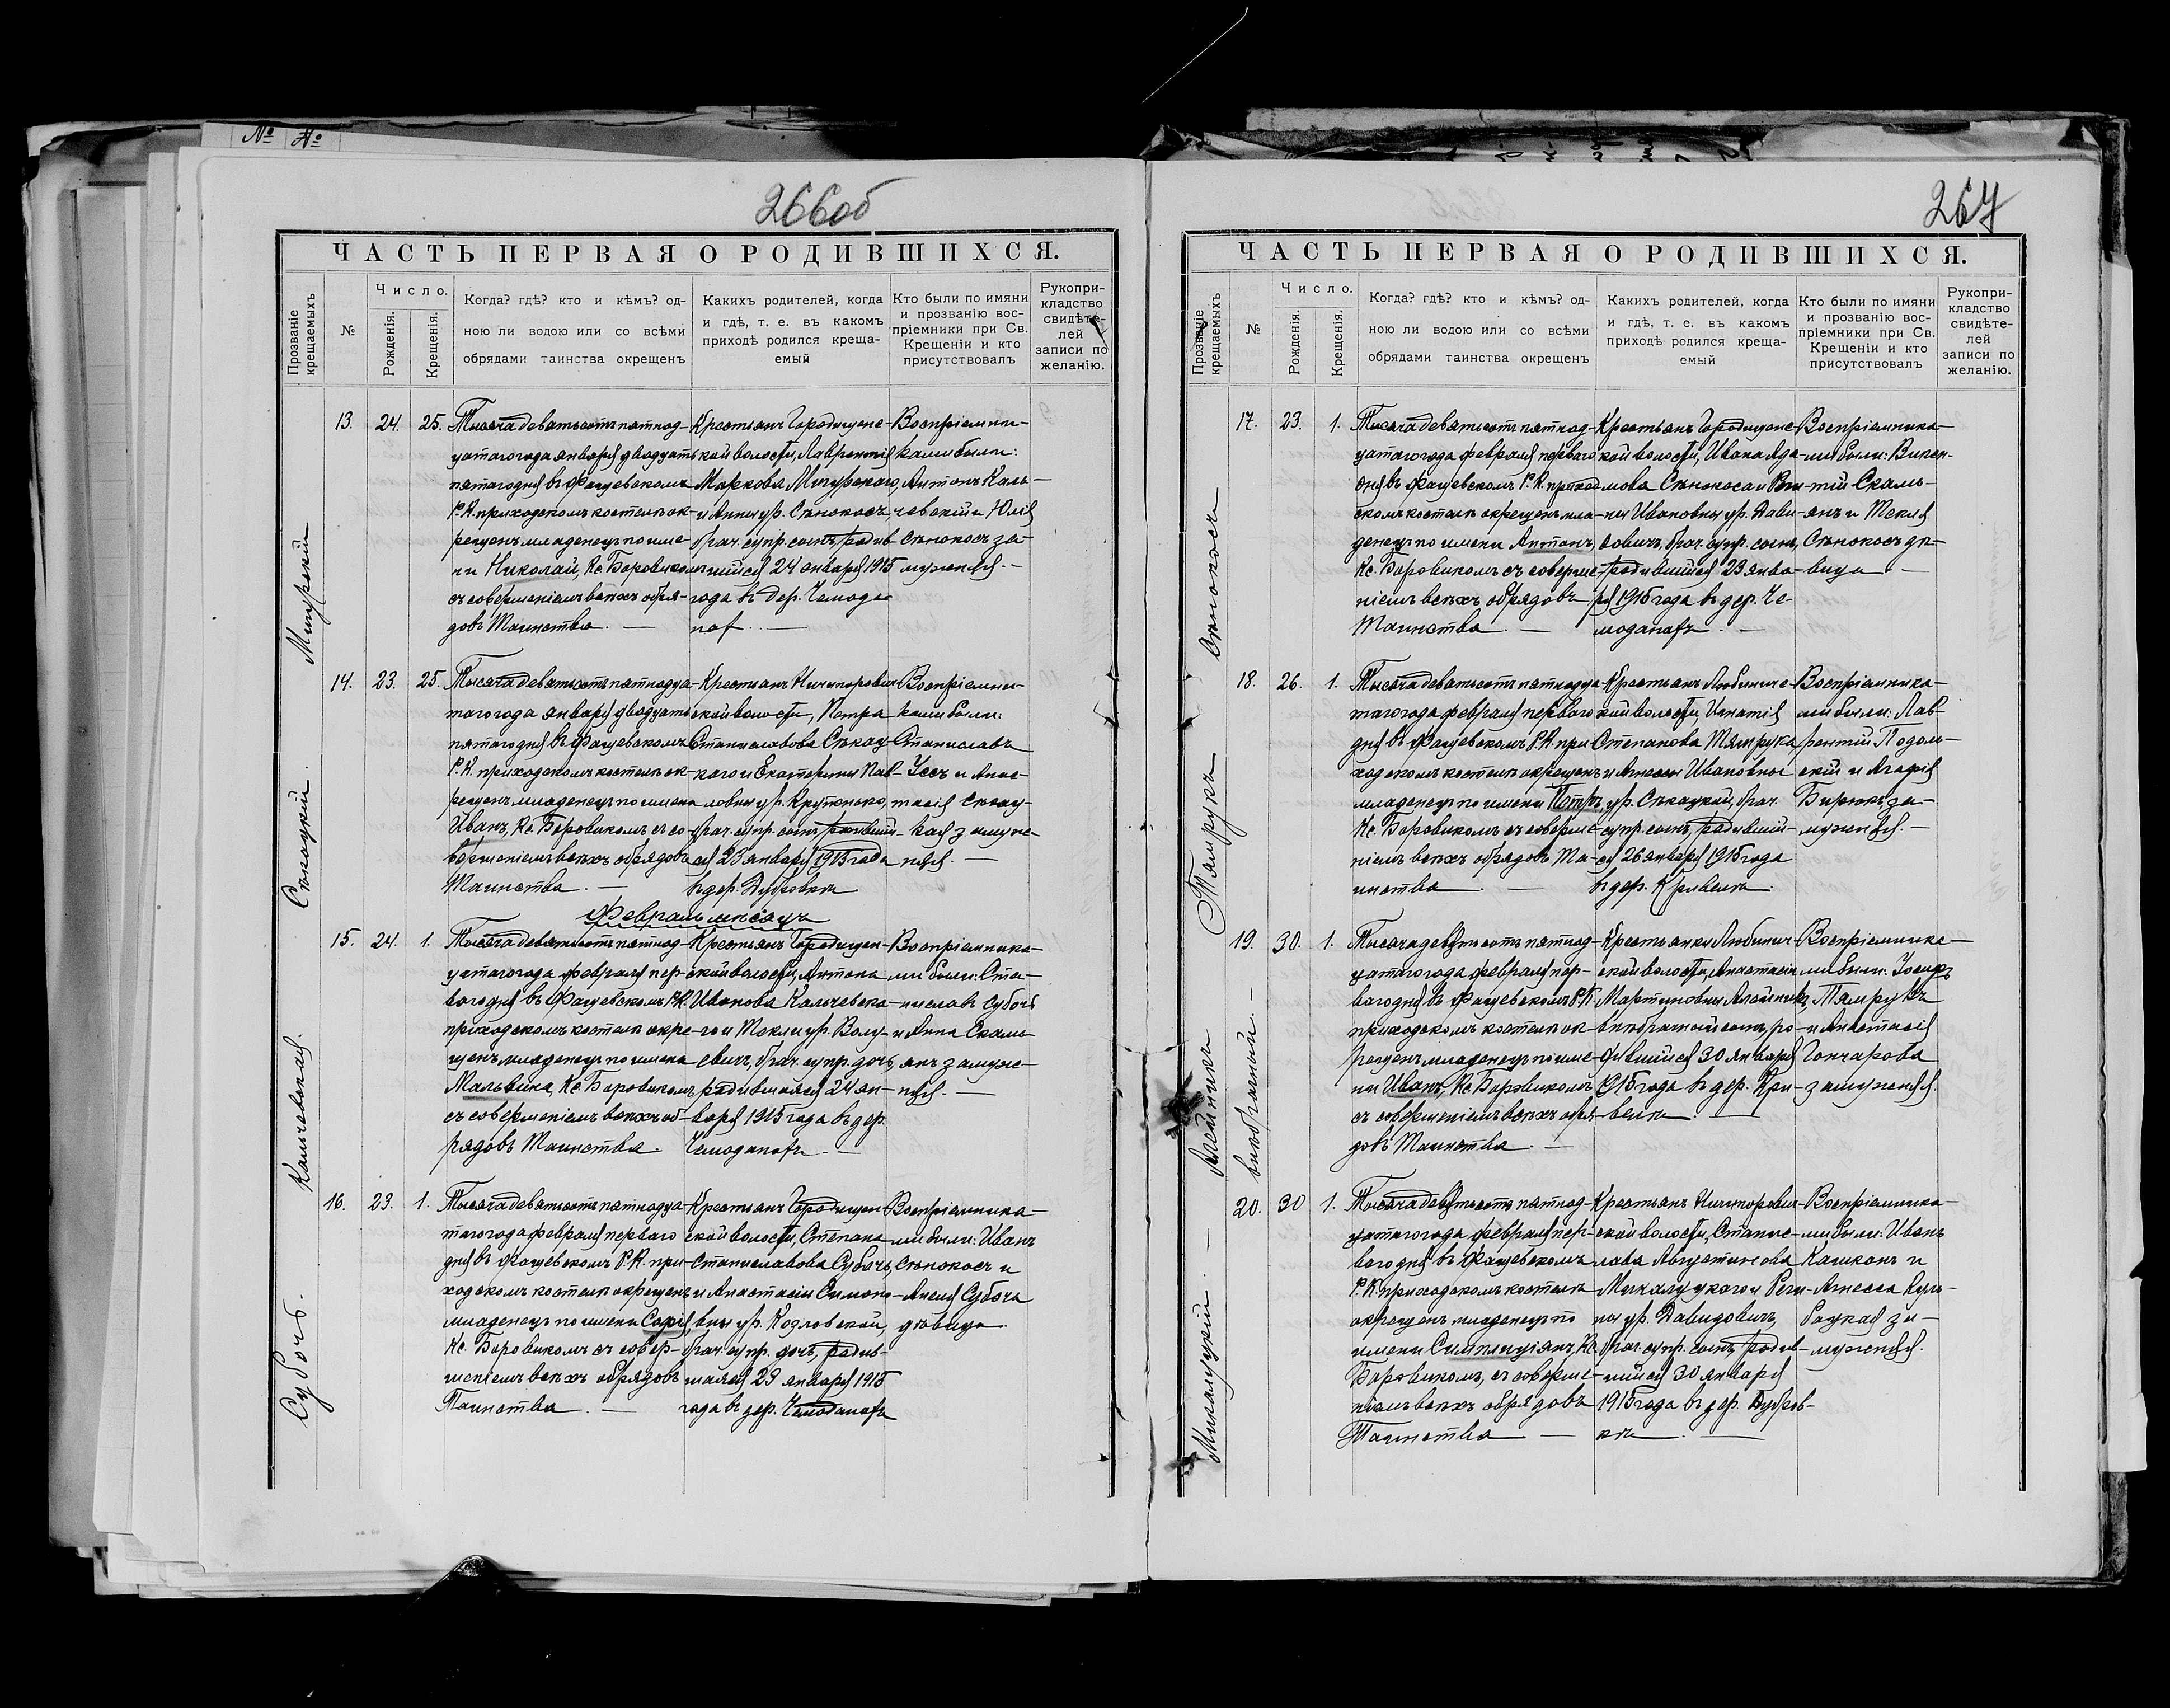 № №
266об
ЧАСТЬ ПЕРВАЯ О РОДИВШИХСЯ.
Прозваніе крещаемыхъ
№
Число.
Рожденія.
Крещенія.
Когда? гдѣ? кто и кѣмъ? од-
ною ли водою или со всѣми
обрядами таинства окрещенъ
Какихъ родителей, когда
и гдѣ, т. е. въ какомъ
приходѣ родился креща-
емый
Кто были по имяни
и прозванію вос-
пріемники при Св.
Крещеніи и кто
присутствовалъ
Рукопри-
кладство
свидѣте-
лей
записи по
желанію.
13. 24. 25.
Тысяча девятьсотъ пятнад-
цатаго года января двадцать
пятаго дня въ Фащевскомъ
Р.К. приходскомъ костелѣ ок-
рещенъ младенецъ по име-
ни Николай, Кс. Боровикомъ
съ совершеніемъ всѣхъ обря-
довъ Таинства. —
Крестьянъ Городищенс-
кой волости, Лаврентія
Маркова Мигурскаго,
и Анны ур. Сѣнокосъ,
брач. супр. сынъ, родив-
шійся 24 января 1915
года въ дер. Чемода-
нах. —
Воспріемни-
ками были:
Антонъ Каль-
чевскій и Юлія
Сѣнокосъ за-
мужняя. —
Мигурскій
14. 23. 25.
Тысяча девятьсотъ пятнадца-
таго года января двадцать
пятаго дня въ Фащевскомъ
Р.К. приходскомъ костелѣ ок-
рещенъ младенецъ по имени
Иванъ, Кс. Боровикомъ съ со-
вершеніемъ всѣхъ обрядовъ
Таинства. —
Крестьянъ Ничипорович-
ской волости, Петра
Станиславова Сѣкац-
каго и Екатерины Пав-
ловны ур. Крупенько,
брач. супр. сынъ, родивший-
ся 23 января 1915 года
въ дер. Дубровкѣ
Воспріемни-
ками были:
Станиславъ
Усъ и Анас-
тасія Сѣкац-
кая замуж-
няя. —
Сѣкацкій.
Февраль мѣсяцъ
15. 24. 1.
Тысяча девятьсотъ пятнад-
цатаго года февраля пер-
ваго дня въ Фащевскомъ Р.К.
приходскомъ костелѣ окре-
щенъ младенецъ по имени
Мальвина, Кс. Боровикомъ
съ совершеніемъ всѣхъ об-
рядовъ Таинства.
Крестьянъ Городищен-
ской волости, Антона
Иванова Кальчевска-
го и Теклы ур. Волу-
евичъ, брач. супр. дочь,
родившаяся 24 ян-
варя 1915 года въ дер.
Чемоданахъ. —
Воспріемника-
ми были: Ста-
ниславъ Субочъ
и Анна Скаль-
янъ замуж-
няя. —
Кальчевская.
16. 23. 1.
Тысяча девятьсотъ пятнадца-
таго года февраля перваго
дня въ Фащевскомъ Р.К. при-
ходскомъ костелѣ окрещенъ
младенецъ по имени Софія,
Кс. Боровикомъ съ совер-
шеніемъ всѣхъ обрядовъ
Таинства. —
Крестьянъ Городищен-
ской волости, Степана
Станиславова Субочъ,
и Анастасіи Симоно-
вны ур. Козловской,
брач. супр. дочь, родив-
шаяся 23 января 1915
года въ дер. Чемоданахъ
Воспріемника-
ми были: Иванъ
Сѣнокосъ и
Анеля Субочъ
дѣвица.
Субочъ.
267
ЧАСТЬ ПЕРВАЯ О РОДИВШИХСЯ.
Прозваніе крещаемыхъ
№
Число.
Рожденія.
Крещенія.
Когда? гдѣ? кто и кѣмъ? од-
ною ли водою или со всѣми
обрядами таинства окрещенъ
Какихъ родителей, когда
и гдѣ, т. е. въ какомъ
приходѣ родился креща-
емый
Кто были по имяни
и прозванію вос-
пріемники при Св.
Крещеніи и кто
присутствовалъ
Рукопри-
кладство
свидѣте-
лей
записи по
желанію.
17. 23. 1.
Тысяча девятьсотъ пятнад-
цатаго года февраля перваго
дня въ Фащевскомъ Р.К. приход-
скомъ костелѣ окрещенъ мла-
денецъ по имени Антонъ,
Кс. Боровикомъ съ соверше-
ніемъ всѣхъ обрядовъ
Таинства. —
Крестьянъ Городищенс-
кой волости, Ивана Ада-
мова Сѣнокоса и Реги-
ны Ивановны ур. Дави-
довичъ, брач. супр. сынъ,
родившійся 23 янва-
ря 1915 года въ дер. Че-
моданахъ. —
Воспріемника-
ми были: Викен-
тій Скаль-
янъ и Текля
Сѣнокосъ дѣ-
вица —
Сѣнокосъ
18. 26. 1.
Тысяча девятьсотъ пятнадца-
таго года февраля перваго
дня въ Фащевскомъ Р.К. при-
ходскомъ костелѣ окрещенъ
младенецъ по имени Петръ,
Кс. Боровикомъ съ соверше-
ніемъ всѣхъ обрядовъ Та-
инства. —
Крестьянъ Любиниче-
кой волости, Игнатія
Степанова Тямрука
и Агнессы Ивановны
ур. Сѣкацкой, брач.
супр. сынъ, родивший-
ся 26 января 1915 года
въ дер. Кривелѣ.
Воспріемника-
ми были: Лав-
рентій Подоль-
скій и Агафія
Бирюкъ за-
мужняя. —
Тямрукъ
19. 30. 1.
Тысяча девятьсотъ пятнад-
цатаго года февраля пер-
ваго дня въ Фащевскомъ Р.К.
приходскомъ костелѣ ок-
рещенъ младенецъ по име-
ни Иванъ, Кс. Боровикомъ
съ совершеніемъ всѣхъ обря-
довъ Таинства. —
Крестьянки Любинич-
ской волости, Анастасіи
Мартиновны Алейникъ,
внѣбрачный сынъ, ро-
дившійся 30 января
1915 года въ дер. Кри-
велѣ. —
Воспріемника-
ми были: Іосифъ
Тямрукъ
и Анастасія
Гончарова
замужняя.
Алейникъ
внѣбрачный. —
20. 30 1.
Тысяча девятьсотъ пятнад-
цатаго года февраля пер-
ваго дня въ Фащевскомъ
Р.К. приходскомъ костелѣ
окрещенъ младенецъ по
имени Симплиціанъ, Кс.
Боровикомъ, съ соверше-
ніемъ всѣхъ обрядовъ
Таинства —
Крестьянъ Ничипорович-
ской волости, Станис-
лава Августинова
Микалуцкаго и Реги-
ны ур. Давидовичъ,
брач. супр. сынъ, родив-
шійся 30 января
1915 года въ дер. Дубров-
кѣ. —
Воспріемника-
ми были: Иванъ
Кашканъ и
Агнесса
замужняя.
Микалуцкій. —